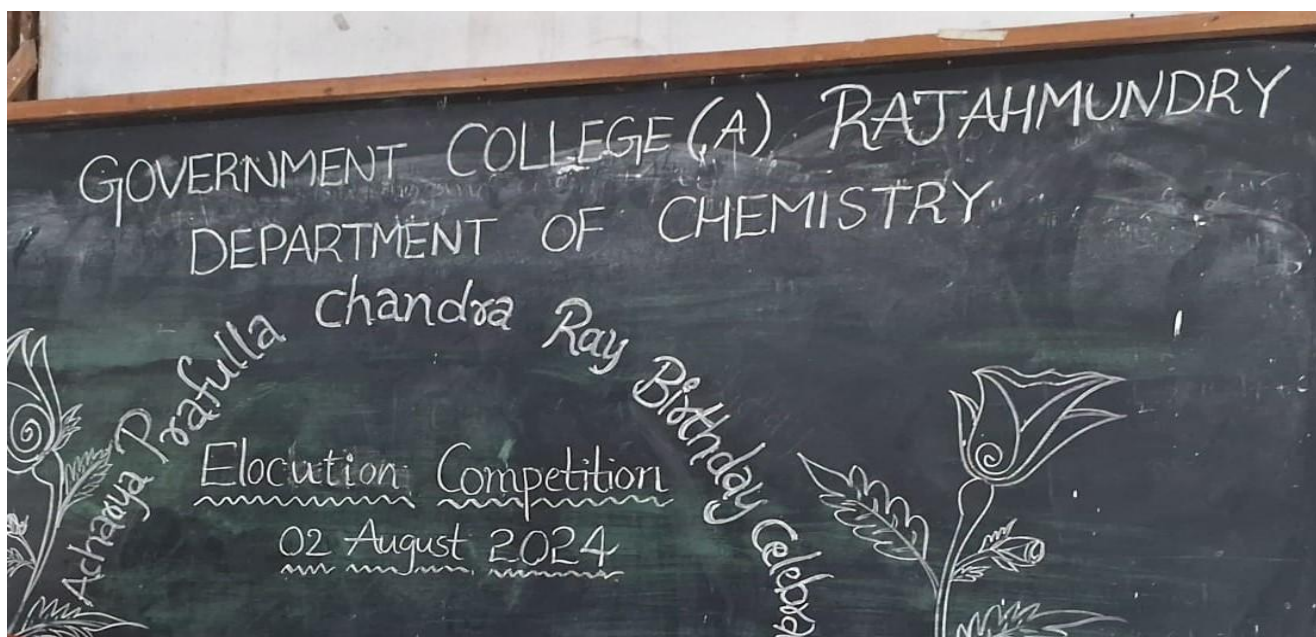 GOVERNMENT COLLEGE (A) RAJAHMUNDRY
DEPARTMENT OF CHEMISTRY
Acharya Prafulla Chandra Ray Birthday
Elocution Competition
02 August 2024